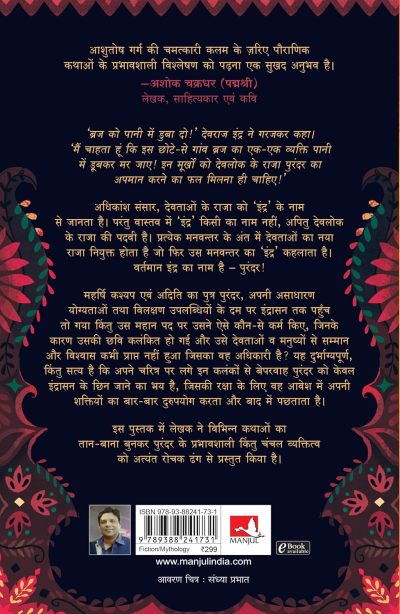 आशुतोष गर्ग की चमत्कारी कलम के ज़रिए पौराणिक
कथाओं के प्रभावशाली विश्लेषण को पढ़ना एक सुखद अनुभव है।
–अशोक चक्रधर (पद्मश्री)
लेखक, साहित्यकार एवं कवि
'ब्रज को पानी में डुबा दो!' देवराज इंद्र ने गरजकर कहा।
'मैं चाहता हूं कि इस छोटे-से गांव ब्रज का एक-एक व्यक्ति पानी
में डूबकर मर जाए! इन मूर्खों को देवलोक के राजा पुरंदर का
अपमान करने का फल मिलना ही चाहिए!'
अधिकांश संसार, देवताओं के राजा को 'इंद्र' के नाम
से जानता है। परंतु वास्तव में 'इंद्र' किसी का नाम नहीं, अपितु देवलोक
के राजा की पदवी है। प्रत्येक मनवन्तर के अंत में देवताओं का नया
राजा नियुक्त होता है जो फिर उस मनवन्तर का 'इंद्र' कहलाता है।
वर्तमान इंद्र का नाम है – पुरंदर!
महर्षि कश्यप एवं अदिति का पुत्र पुरंदर, अपनी असाधारण
योग्यताओं तथा विलक्षण उपलब्धियों के दम पर इंद्रासन तक पहुँच
तो गया किंतु उस महान पद पर उसने ऐसे कौन-से कर्म किए, जिनके
कारण उसकी छवि कलंकित हो गई और उसे देवताओं व मनुष्यों से सम्मान
और विश्वास कभी प्राप्त नहीं हुआ जिसका वह अधिकारी है? यह दुर्भाग्यपूर्ण,
किंतु सत्य है कि अपने चरित्र पर लगे इन कलंकों से बेपरवाह पुरंदर को केवल
इंद्रासन के छिन जाने का भय है, जिसकी रक्षा के लिए वह आवेश में अपनी
शक्तियों का बार-बार दुरुपयोग करता और बाद में पछताता है।
इस पुस्तक में लेखक ने विभिन्न कथाओं का
तान-बाना बुनकर पुरंदर के प्रभावशाली किंतु चंचल व्यक्तित्व
को अत्यंत रोचक ढंग से प्रस्तुत किया है।
ISBN 978-93-88241-73-1
9789388241731
Fiction/Mythology ₹299
MANJUL
eBook available
www.manjulindia.com
आवरण चित्र : संध्या प्रभात